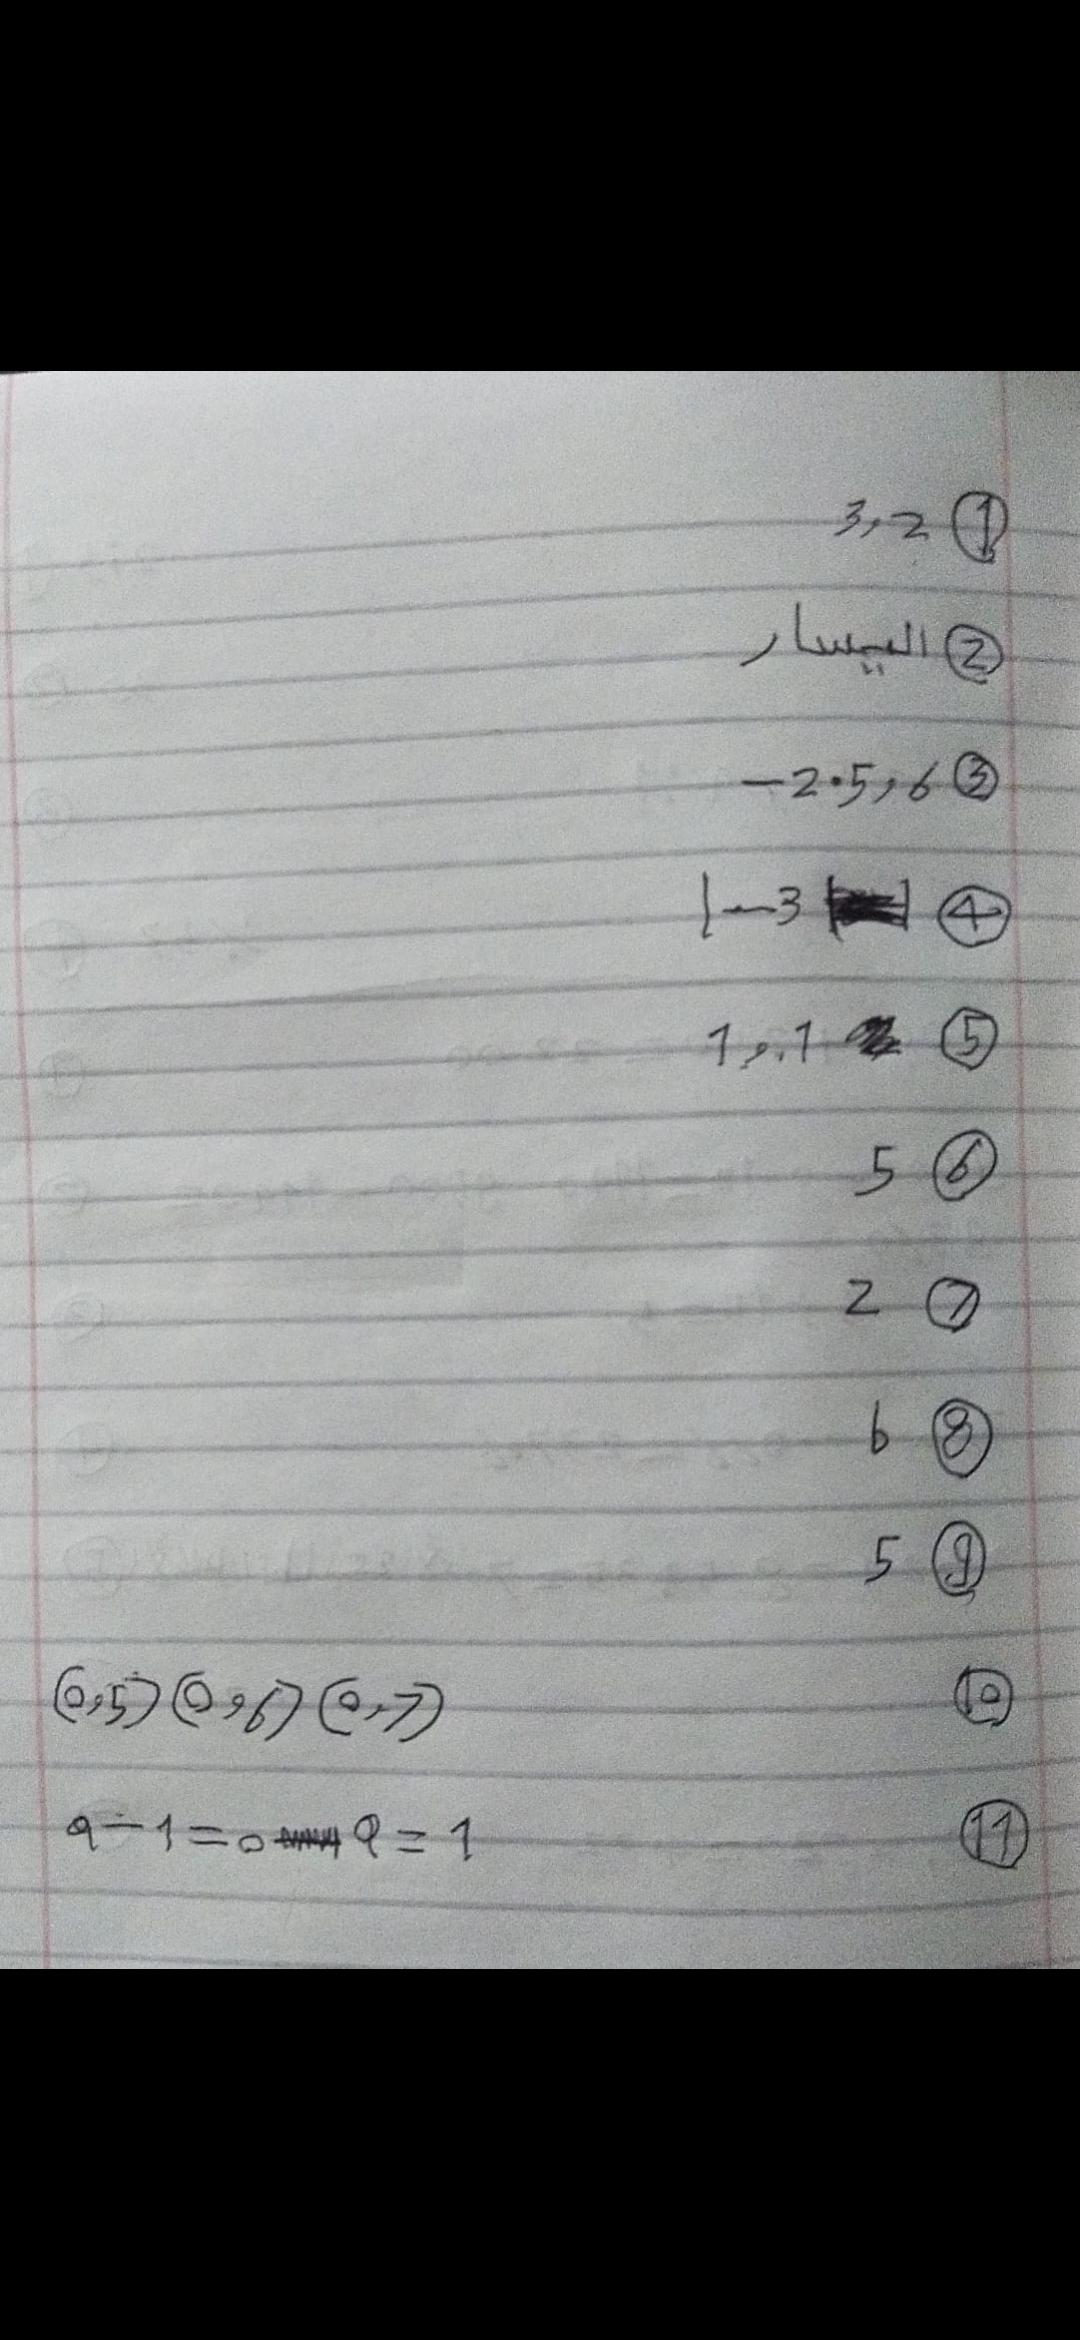 ① 3,2
② اليسار
③ -2.5,6
④ |-3|
⑤ 1,.1
⑥ 5
⑦ 2
⑧ b
⑨ 5
⑩ (0,5) (0,6) (0,7)
⑪ a-1=0 a=1